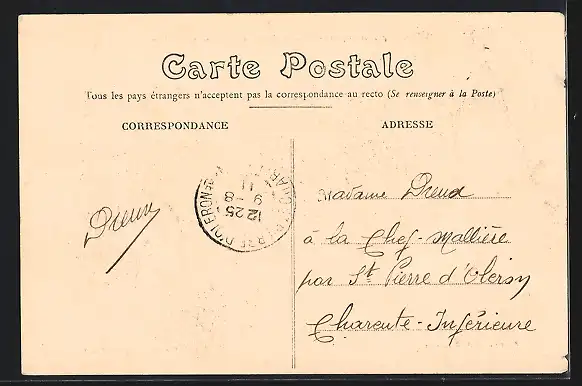 Carte Postale
Tous les pays étrangers n'acceptent pas la correspondance au recto (Se renseigner à la Poste)
CORRESPONDANCE
ADRESSE
12 25
9 - 8
11
D'OLERON
Madame
à la Chef-mallière
par St Pierre d'Oleron
Charente-Inférieure